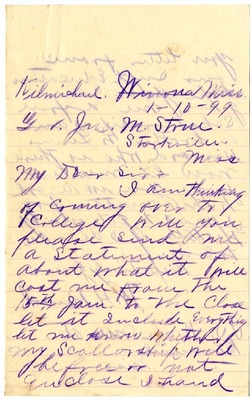 Kilmichael, Winona Miss
1-10-99
Jno. M. Stone
Starkville
Miss
My Dear Sir
I am thinking
of Coming over to
College will you
please send me
a Statement of
about what it will
cost me from the
15th Jan. to the Close
let it Include Everything
let me know Whether
my Scallorship will
be free or not
Enclose I hand